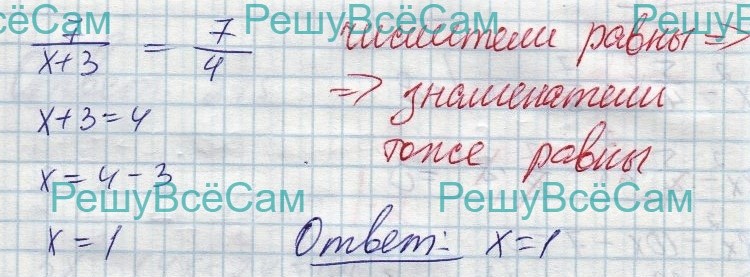 РешуВсёСам РешуВсёСам РешуВсёСам
7/(x+3) = 7/4
числители равны =>
=> знаменатели
тоже равны
x+3=4
x=4-3
РешуВсёСам РешуВсёСам
x=1
Ответ: x=1